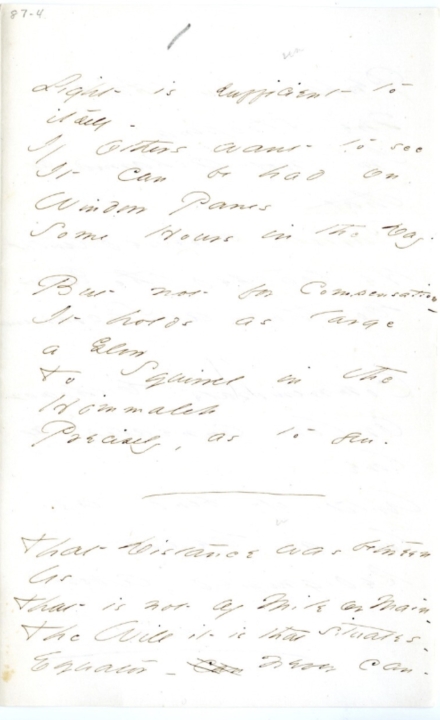 87-4
Light is sufficient to
itself -
If Others want to see
It can be had on
Window Panes
Some Hours in the Day.
But not for Compensation
It holds as large
a Glow
To Squirrel in the
Himmaleh
Precisely, as to
That Distance was between
Us
That is not of Mile or Main -
The Will it is that situates -
Equator - never can -